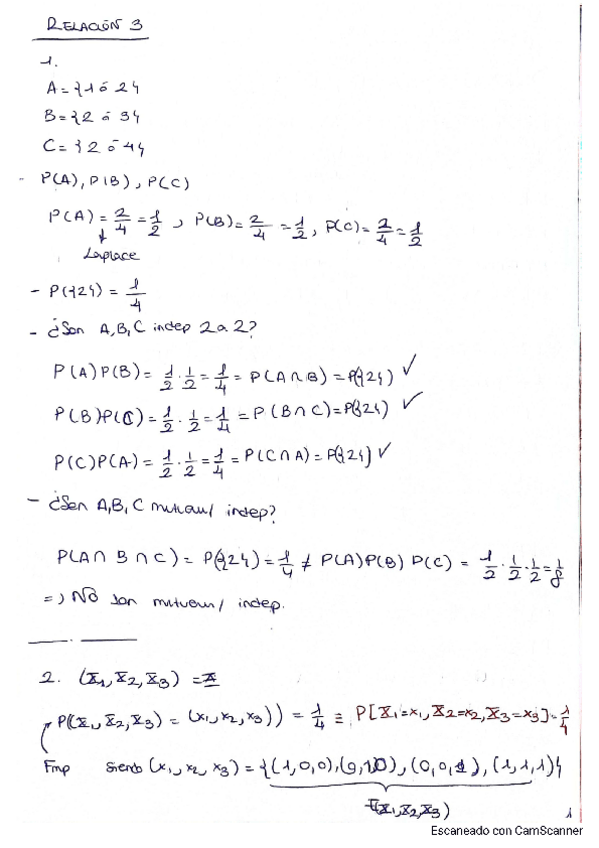 RELACIÓN 3
1.
A = {1 ó 2}
B = {2 ó 3}
C = {2 ó 4}
- P(A), P(B), P(C)
P(A) = 2/4 = 1/2, P(B) = 2/4 = 1/2, P(C) = 2/4 = 1/2
↓
Laplace
- P({2}) = 1/4
- ¿Son A, B, C indep 2 a 2?
P(A)P(B) = 1/2 · 1/2 = 1/4 = P(A∩B) = P({2}) ✓
P(B)P(C) = 1/2 · 1/2 = 1/4 = P(B∩C) = P({2}) ✓
P(C)P(A) = 1/2 · 1/2 = 1/4 = P(C∩A) = P({2}) ✓
- ¿Son A, B, C mutuam/ indep?
P(A∩B∩C) = P({2}) = 1/4 ≠ P(A)P(B)P(C) = 1/2 · 1/2 · 1/2 = 1/8
=) No son mutuam/ indep.
2. (X1, X2, X3) = X
P((X1, X2, X3) = (x1, x2, x3)) = 1/4 ≡ P[X1=x1, X2=x2, X3=x3] = 1/4
Fmp siendo (x1, x2, x3) = {(1,0,0), (0,1,0), (0,0,1), (1,1,1)}
(X1, X2, X3)
1
Escaneado con CamScanner